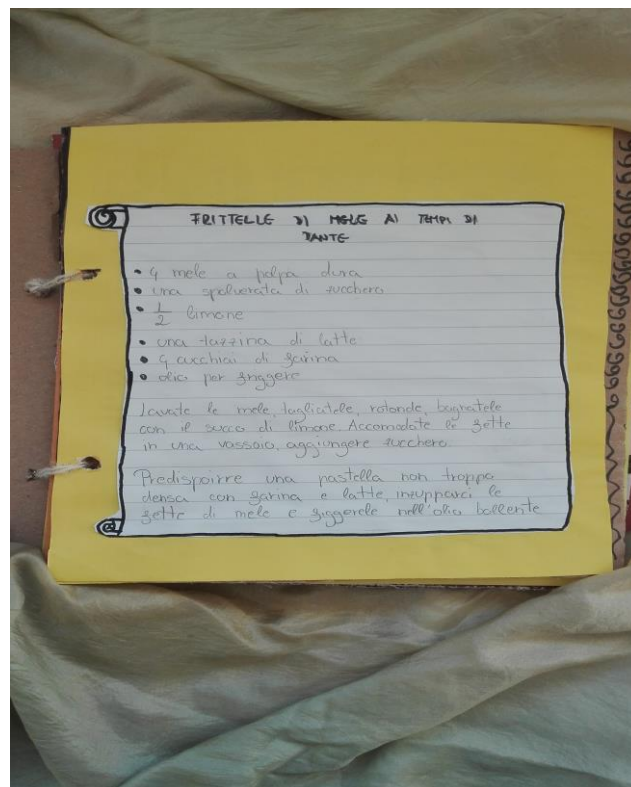 FRITTELLE DI MELE AI TEMPI DI
DANTE
• 4 mele a polpa dura
• una spolverata di zucchero
• 1/2 limone
• una tazzina di latte
• 4 cucchiai di farina
• olio per friggere
Lavate le mele, tagliatele, rotonde, bagnatele
con il succo di limone. Accomodate le fette
in una vassoio, aggiungere zucchero.
Predisporre una pastella non troppo
densa con farina e latte, inzupparci le
fette di mele e friggerele nell'olio bollente